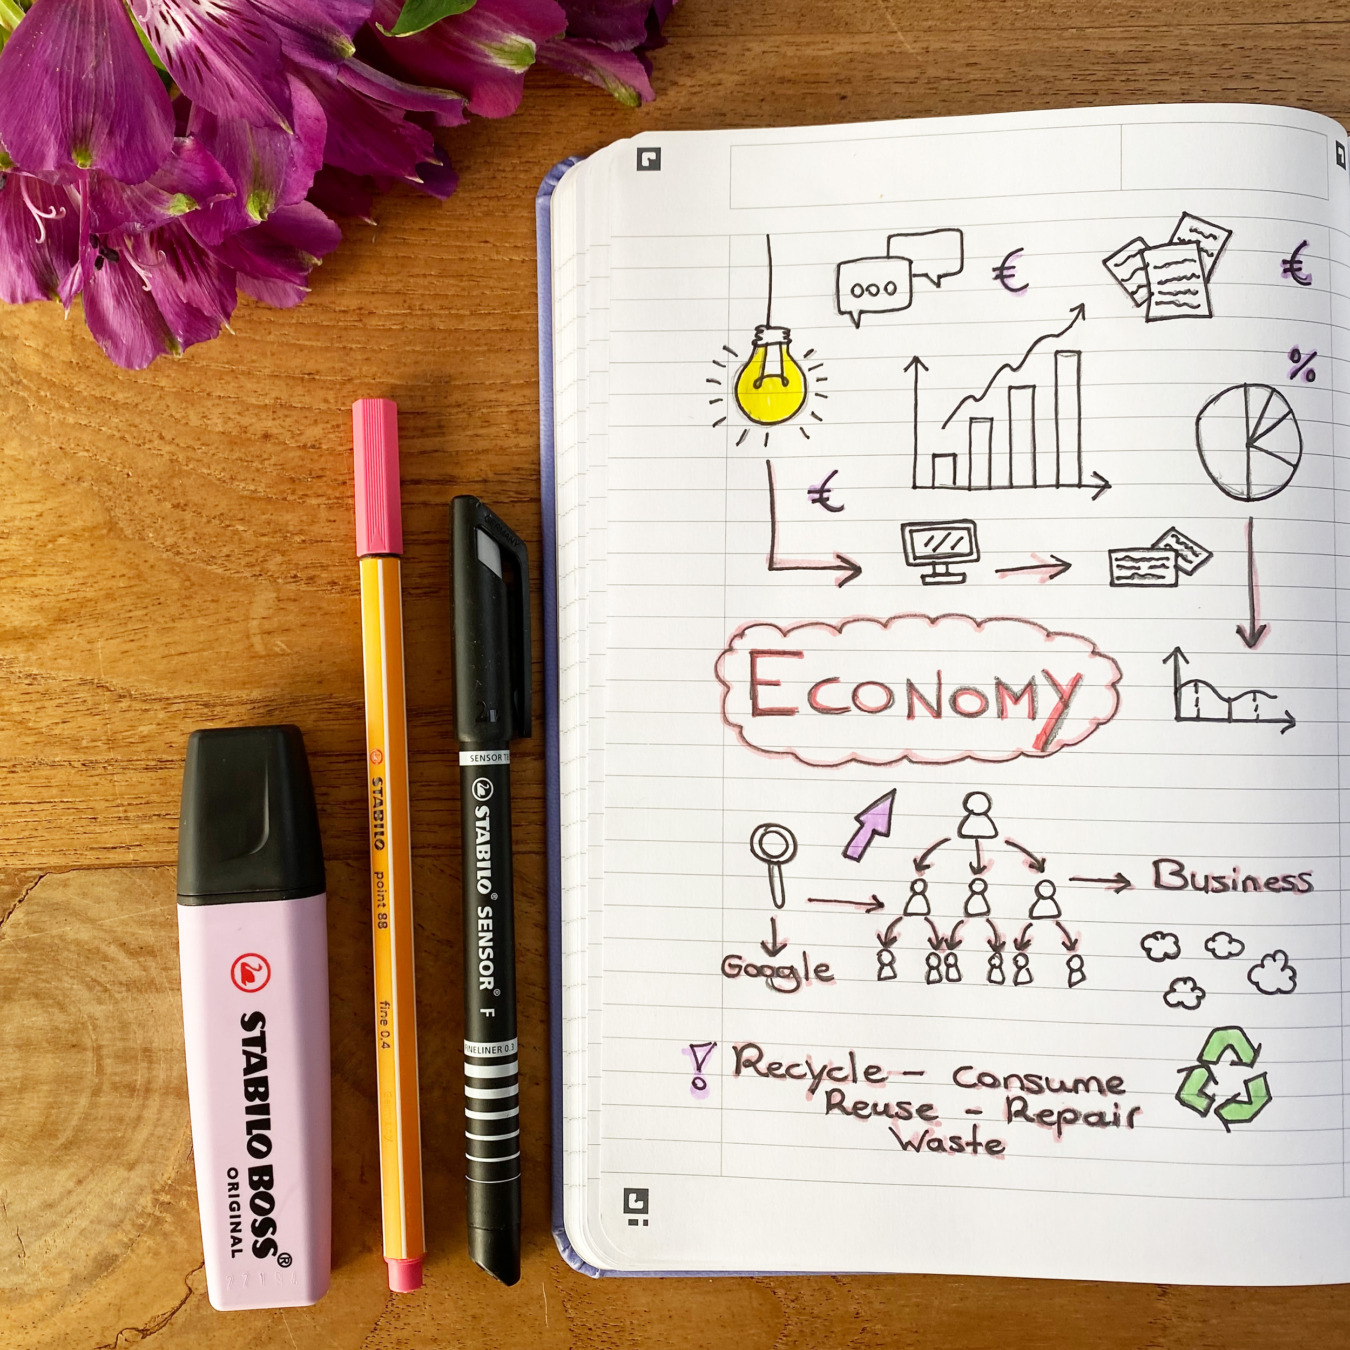 €
€
%
€
ECONOMY
Business
Google
! Recycle - Consume
Reuse - Repair
Waste
STABILO BOSS®
ORIGINAL
STABILO point 88 fine 0.4
STABILO® SENSOR® F
FINELINER 0.3